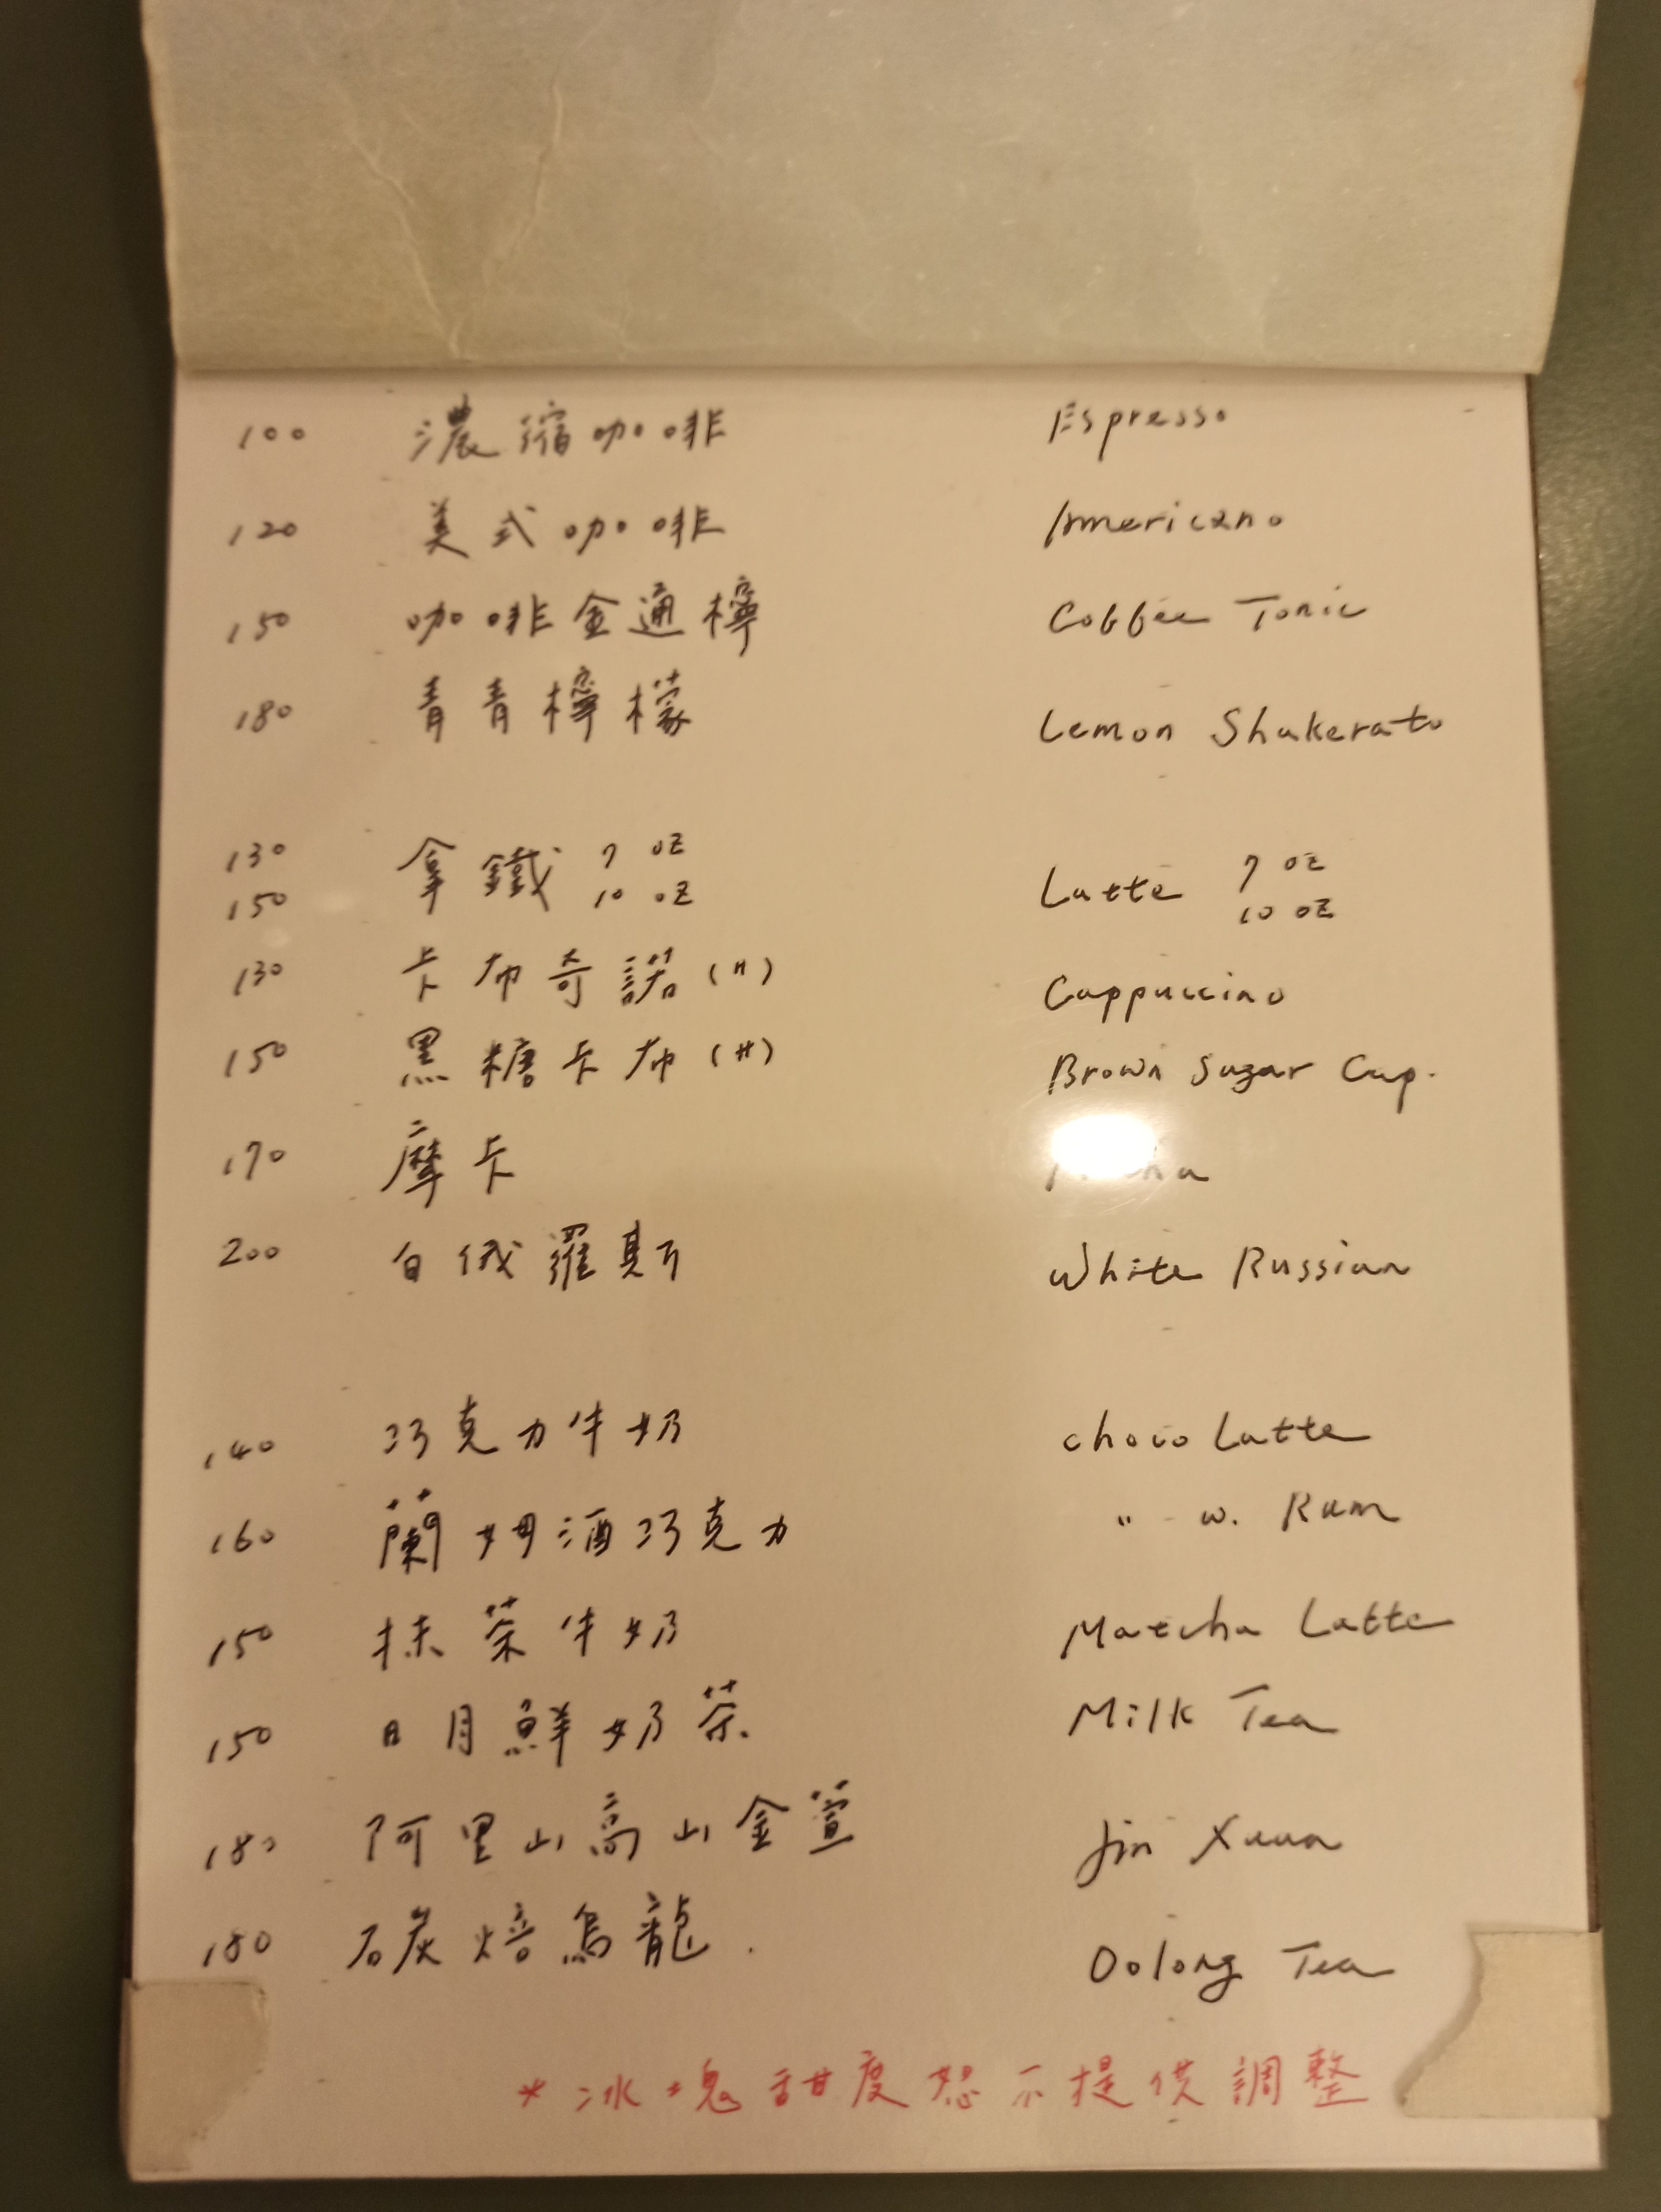 100 濃縮咖啡 Espresso
120 美式咖啡 Americano
150 咖啡金通檸 Coffee Tonic
180 青青檸檬 Lemon Shakerato
130 拿鐵 7 oz Latte 7 oz
150 10 oz 10 oz
130 卡布奇諾 (H) Cappuccino
150 黑糖卡布 (H) Brown Sugar Cap.
170 摩卡
200 白俄羅斯 White Russian
140 巧克力牛奶 choco Latte
160 蘭姆酒巧克力 " w. Rum
150 抹茶牛奶 Matcha Latte
150 日月鮮奶茶. Milk Tea
180 阿里山高山金萱 Jin Xuan
180 碳焙烏龍. Oolong Tea
* 冰塊甜度恕不提供調整